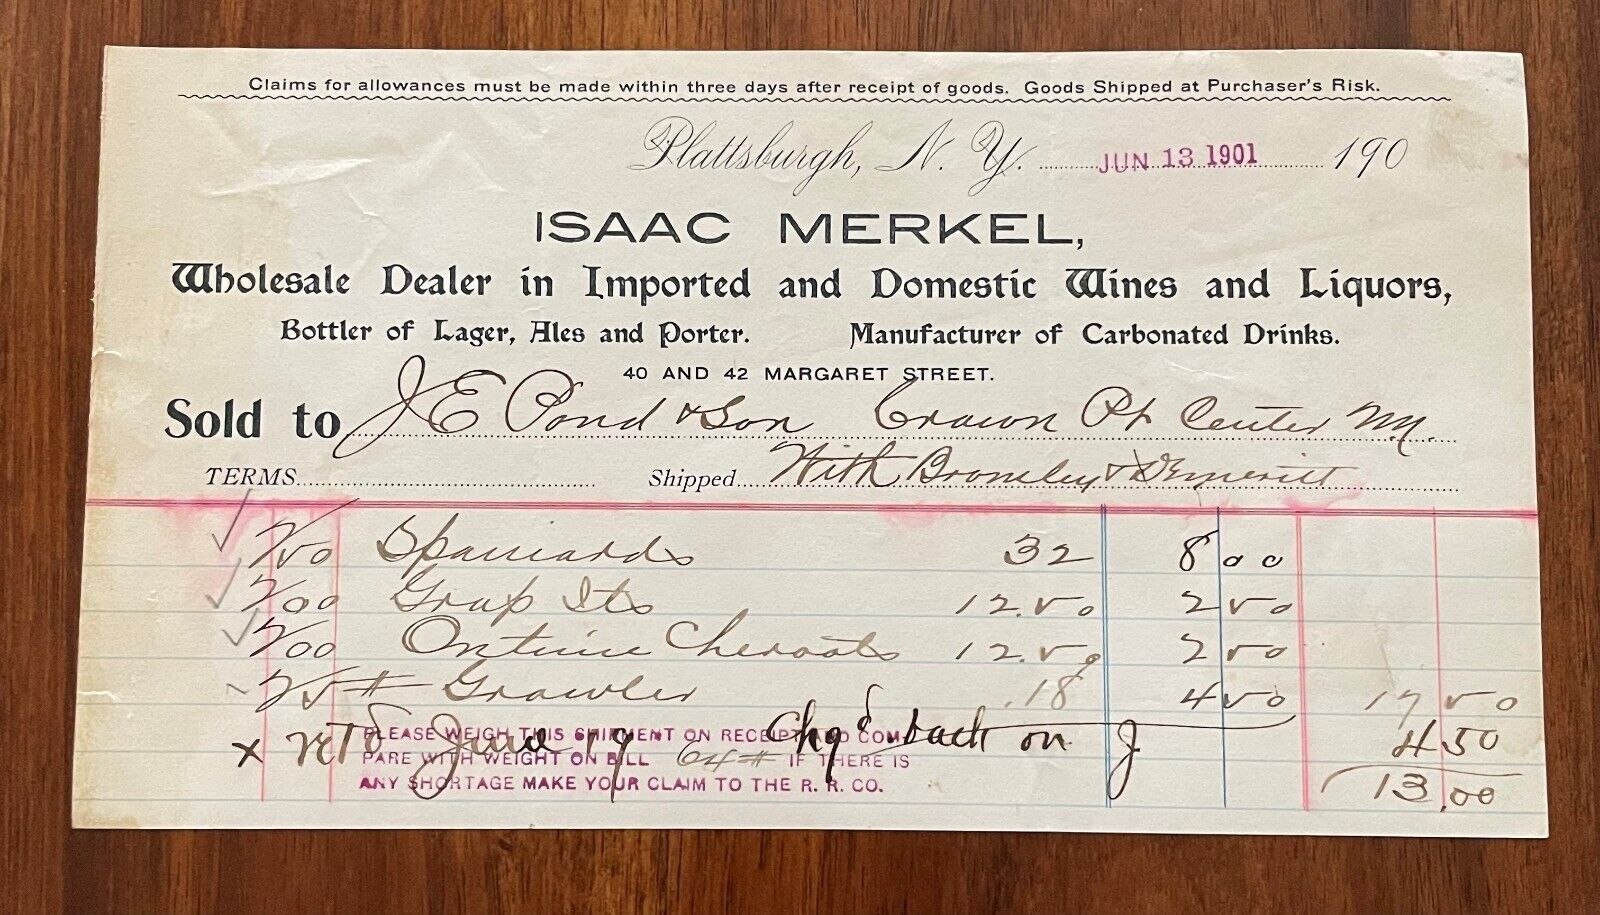 Claims for allowances must be made within three days after receipt of goods. Goods Shipped at Purchaser's Risk.
Plattsburgh, N. Y. JUN 13 1901 190
ISAAC MERKEL,
Wholesale Dealer in Imported and Domestic Wines and Liquors,
Bottler of Lager, Ales and Porter. Manufacturer of Carbonated Drinks.
40 AND 42 MARGARET STREET.
Sold to J E Pond & Son Crown Pt Center N.Y.
TERMS Shipped With Bromley & Demeritt
250 Spaniards 32 8 00
200 Grap Its 12.50 2 50
200 Cheroots 12.50 2 50
25 # Growler .18 4 50 17 50
x retd June 19 Chgd back on J 4 50
PLEASE WEIGH THIS SHIPMENT ON RECEIPT AND COM
PARE WITH WEIGHT ON BILL 64 # IF THERE IS
ANY SHORTAGE MAKE YOUR CLAIM TO THE R. R. CO.
13.00